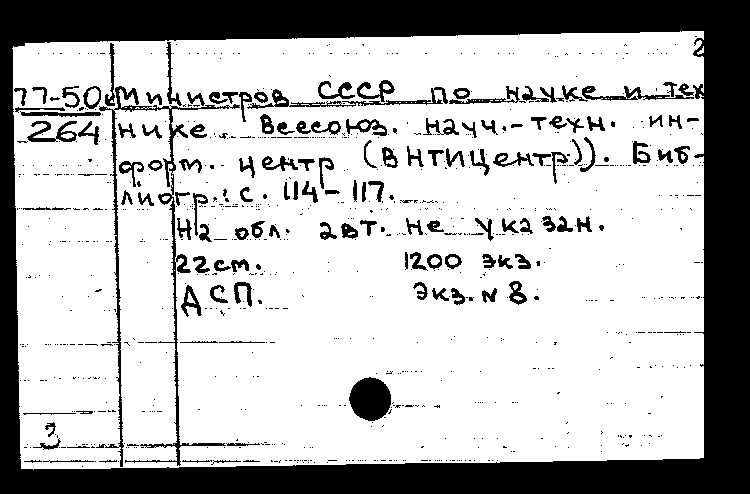 2
77-50к Министров СССР по науке и тех
264 нике. Всесоюз. науч.-техн. ин-
форм. центр (ВНТИЦентр)). Биб-
лиогр.: с. 114-117.
На обл. авт. не указан.
22см. 1200 экз.
ДСП. Экз. N 8.
3